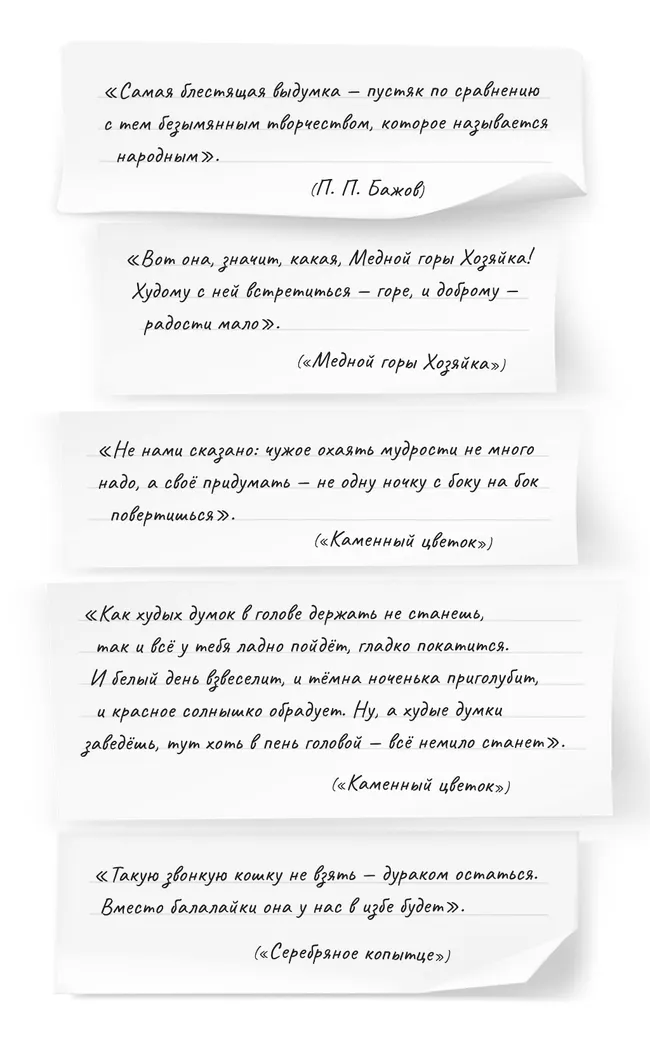 «Самая блестящая выдумка — пустяк по сравнению
с тем безымянным творчеством, которое называется
народным».
(П. П. Бажов)
«Вот она, значит, какая, Медной горы Хозяйка!
Худому с ней встретиться — горе, и доброму —
радости мало».
(«Медной горы Хозяйка»)
«Не нами сказано: чужое охаять мудрости не много
надо, а своё придумать — не одну ночку с боку на бок
повертишься».
(«Каменный цветок»)
«Как худых думок в голове держать не станешь,
так и всё у тебя ладно пойдёт, гладко покатится.
И белый день взвеселит, и тёмна ноченька приголубит,
и красное солнышко обрадует. Ну, а худые думки
заведёшь, тут хоть в пень головой — всё немило станет».
(«Каменный цветок»)
«Такую звонкую кошку не взять — дураком остаться.
Вместо балалайки она у нас в избе будет».
(«Серебряное копытце»)